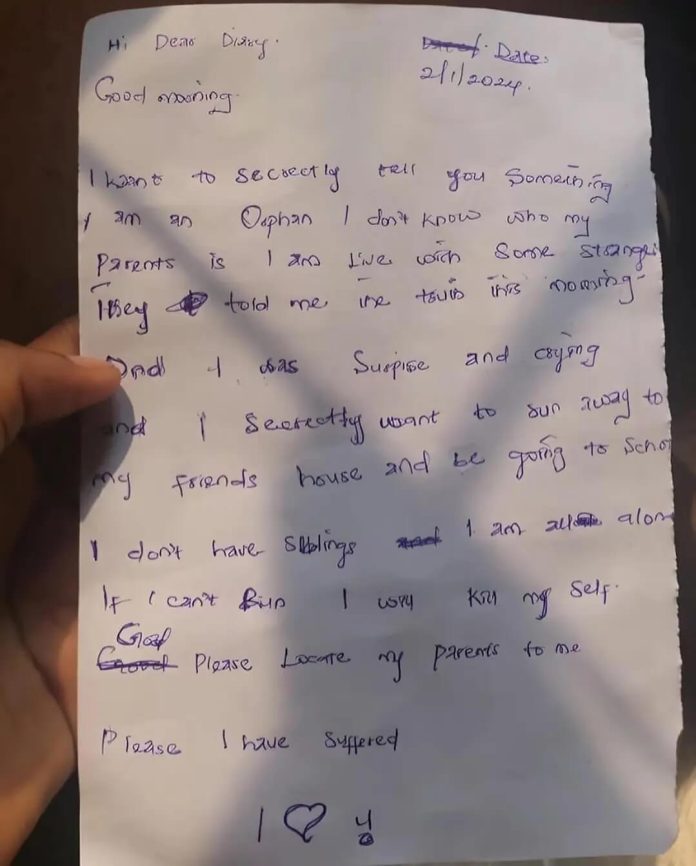 Hi Dear Diary.
Date:
2/1/2024.
Good morning.
I want to secrectly tell you Something
I am an Orphan I don't know who my
Parents is I am Live with Some strange
They told me the truth this morning
I was Surpise and crying
and I Secrectly want to run away to
my friends house and be going to Scho
I don't have Siblings I am alon
If I can't Run I will kill my self.
God
Please Locate my parents to me
Please I have suffered
I ♡ y